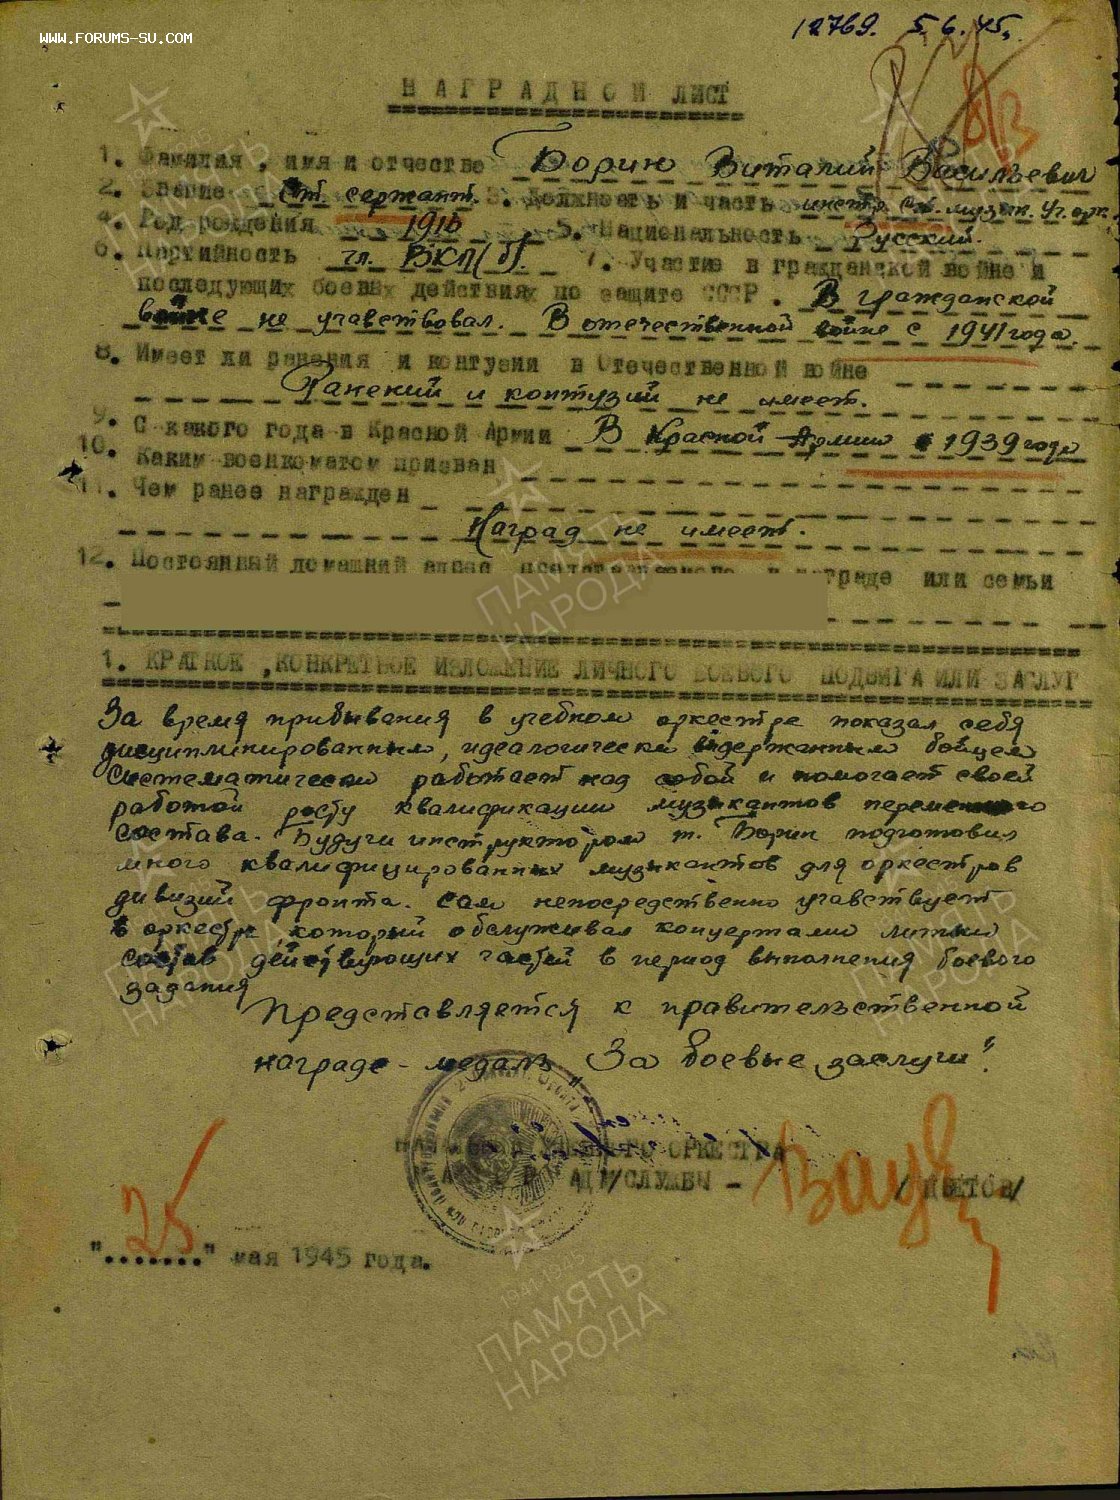 WWW.FORUMS-SU.COM
12769. 5.6.45.
НАГРАДНОЙ ЛИСТ
1. Фамилия, имя и отчество Борин Виталий Васильевич
2. Звание Ст. сержант. 3. Должность и часть инстр. ст. музык. уч. орк.
4. Год рождения 1916 5. Национальность Русский.
6. Партийность чл. ВКП(б). 7. Участие в гражданской войне и
последующих боевых действиях по защите СССР. В гражданской
войне не учавствовал. В отечественной войне с 1941 года.
8. Имеет ли ранения и контузии в Отечественной войне
Ранений и контузий не имеет.
9. С какого года в Красной Армии В Красной Армии с 1939 года
10. Каким военкоматом призван
11. Чем ранее награжден
Наград не имеет.
12. Постоянный домашний адрес представляемого к награде или семьи
1. КРАТКОЕ, КОНКРЕТНОЕ ИЗЛОЖЕНИЕ ЛИЧНОГО БОЕВОГО ПОДВИГА ИЛИ ЗАСЛУГ
За время прибывания в учебном оркестре показал себя
дисциплинированным, идеалогически выдержанным бойцем
Систематически работает над собой и помогает своей
работой росту квалификации музыкантов переменного
состава. Будучи инструктором т. Борин подготовил
много квалифицированных музыкантов для оркестров
дивизий фронта. Сам непосредственно учавствует
в оркестре, который обслуживал концертами личный
состав действующих частей в период выполнения боевого
задания
Представляется к правительственной
награде - медаль "За боевые заслуги".
ОРКЕСТРА
АДМ/СЛУЖБЫ -
"25" мая 1945 года.
ПАМЯТЬ НАРОДА
1941-1945